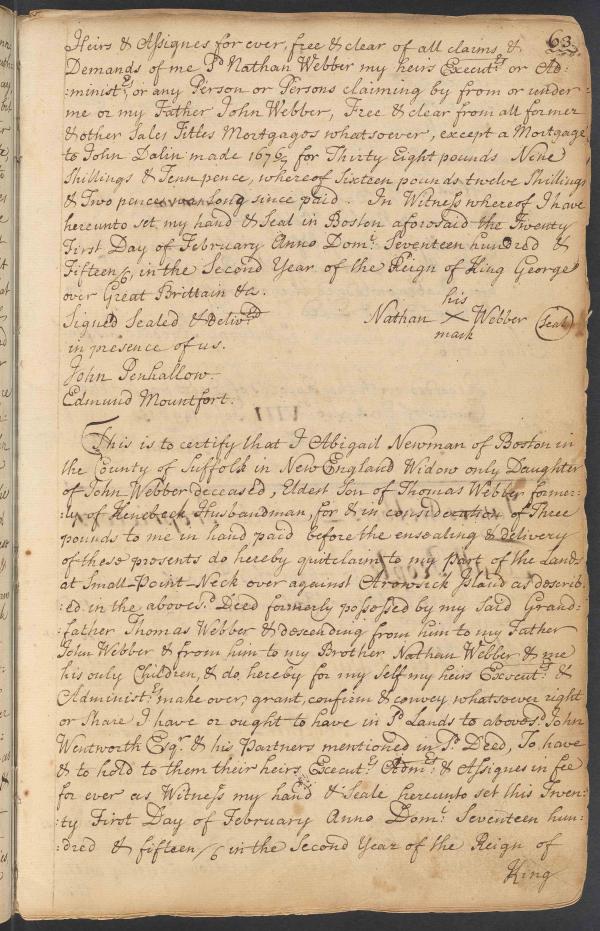 63.
Heirs & Assignes for ever, free & clear of all claims &
Demands of me Sd Nathan Webber my heirs Execut:rs or Ad=
:minist:rs or any Person or Persons claiming by from or under
me or my Father John Webber, Free & clear from all former
& other Sales Titles Mortgagos whatsoever, except a Mortgage
to John Dalin made 1676/7 for Thirty Eight pounds Nine
Shillings & Tenn pence, whereof Sixteen pounds twelve Shillings
& Two pence was long since paid. In Witness whereof I have
hereunto set my hand & Seal in Boston aforesaid the Twenty
First Day of February Anno Dom:i Seventeen hundred &
Fifteen/6, in the Second Year of the Reign of King George
over Great Brittain &c.
Signed Sealed & Deliv:rd
in presence of us.
Nathan his X mark Webber (Seal)
John Penhallow.
Edmund Mountfort.
This is to certify that I Abigail Newman of Boston in
the County of Suffolk in New England Widow only Daughter
of John Webber deceased, Eldest Son of Thomas Webber former=
:ly of Kenebeck Husbandman, for & in consideration of Three
pounds to me in hand paid before the ensealing & delivery
of these presents do hereby quitclaim to my part of the Lands
at Small-Point-Neck over against Arowsick Island as describ=
:ed in the aboves:d Deed formerly possessed by my said Grand=
:father Thomas Webber & descending from him to my Father
John Webber & from him to my Brother Nathan Webber & me
his only Children, & do hereby for my self my heirs Execut:rs &
Administ:rs make over, grant, confirm & convey whatsoever right
or Share I have or ought to have in Sd Lands to aboves:d John
Wentworth Esq:r & his Partners mentioned in Sd Deed, To have
& to hold to them their heirs Execut:rs Adm:rs & Assignes in fee
for ever as Witness my hand & Seale hereunto set this Twen=
:ty First Day of February Anno Dom:i Seventeen hun=
:dred & fifteen/6 in the Second Year of the Reign of
King